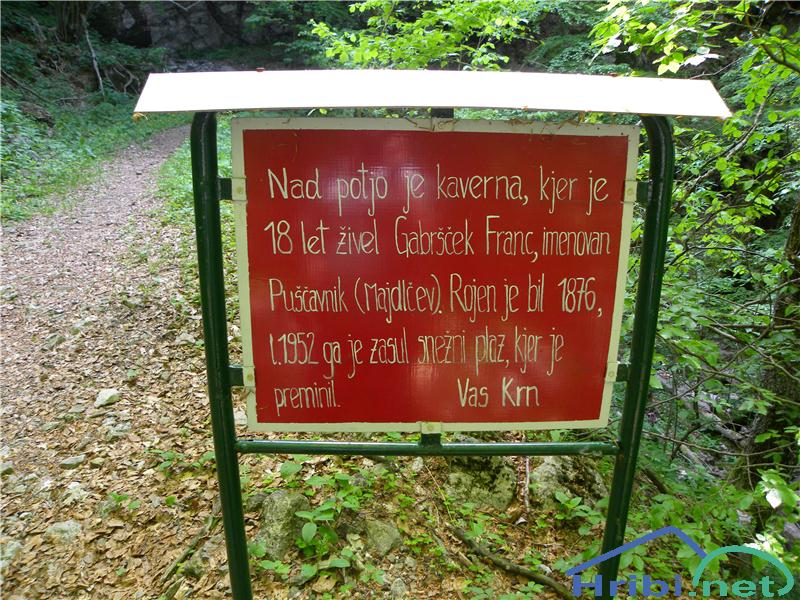 Nad potjo je kaverna, kjer je
18 let živel Gabršček Franc, imenovan
Puščavnik (Majdlčev). Rojen je bil 1876,
l.1952 ga je zasul snežni plaz, kjer je
preminil. Vas Krn
Hribi.net